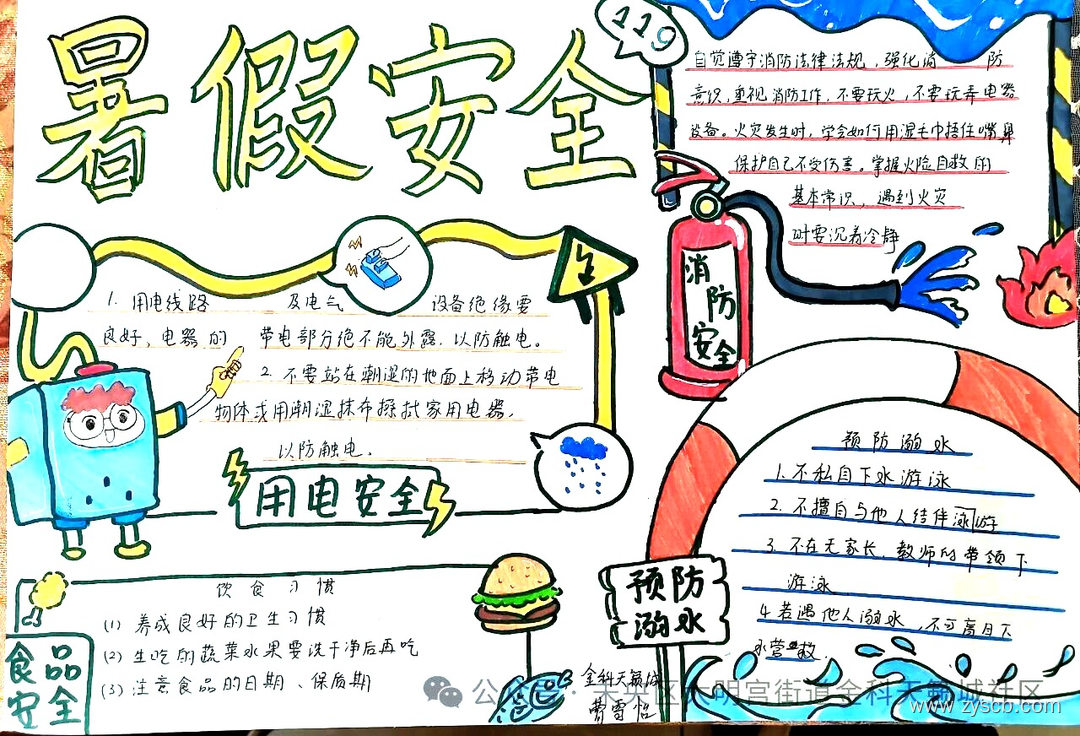 暑假安全
119
自觉遵守消防法律法规，强化消 防
意识，重视消防工作，不要玩火，不要玩弄电器
设备。火灾发生时，学会如何用湿毛巾捂住嘴鼻
保护自己不受伤害。掌握火险自救的
基本常识， 遇到火灾
时要沉着冷静
消防安全
1. 用电线路 及电气 设备绝缘要
良好，电器的 带电部分绝不能外露，以防触电。
2. 不要站在潮湿的地面上移动带电
物体或用潮湿抹布擦拭家用电器，
以防触电。
用电安全
预防溺水
1.不私自下水游泳
2. 不擅自与他人结伴泳游
3. 不在无家长，教师的带领下
游泳
4.若遇他人溺水，不可离自下
水营救.
预防
溺水
饮食习惯
(1) 养成良好的卫生习惯
(2) 生吃的蔬菜水果要洗干净后再吃
(3) 注意食品的日期、保质期
食品
安全
金科天籁城
曹雪怡
公众号·未央区大明宫街道金科天籁城社区
www.zyscb.com